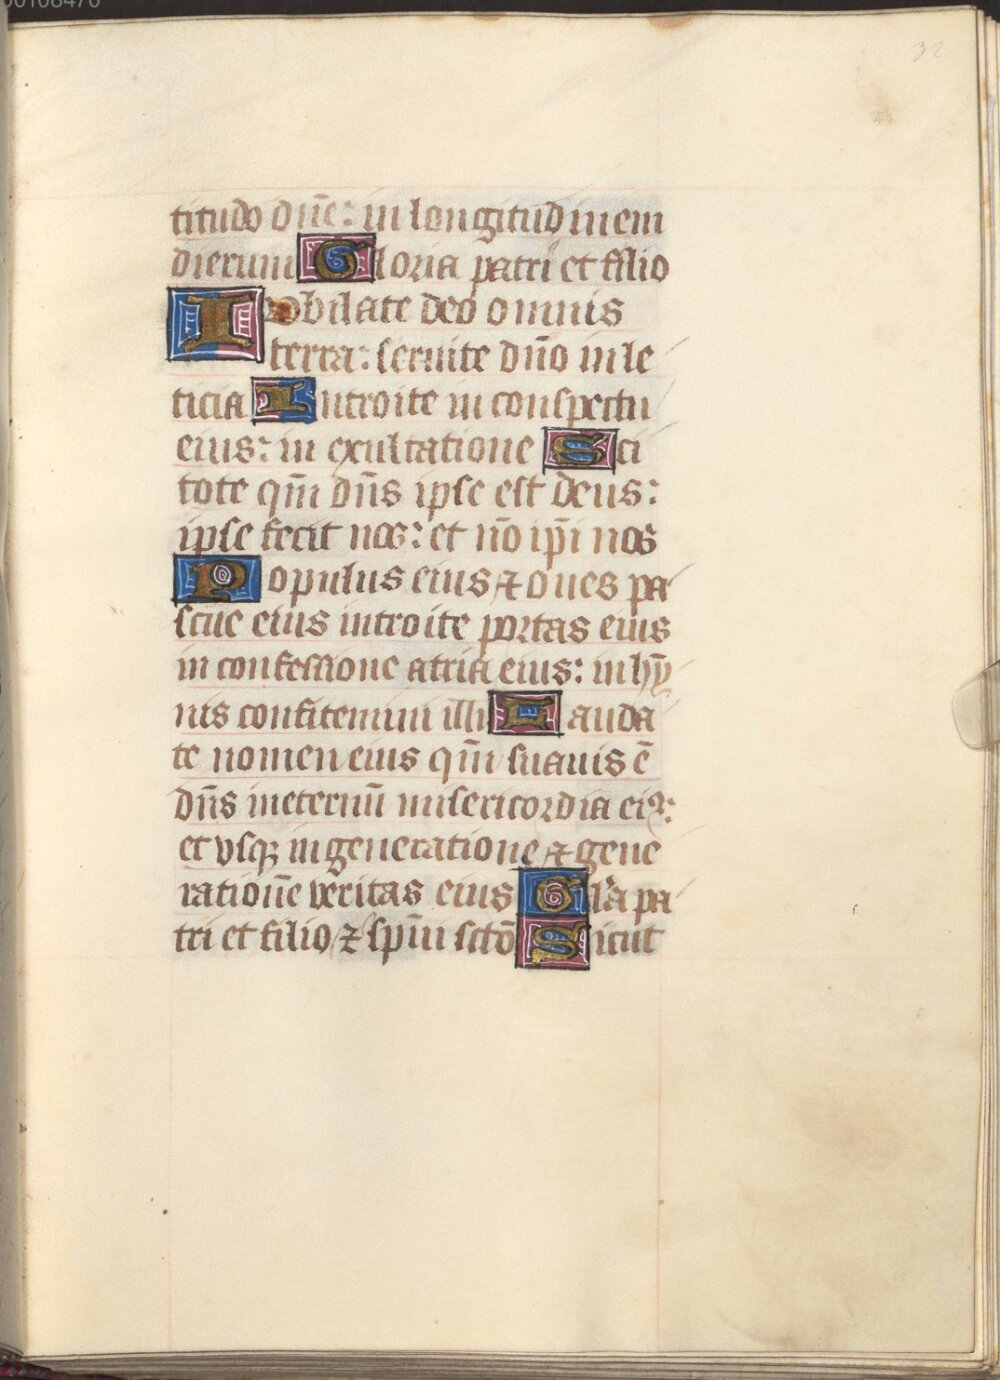 32
titudo dñe: in longitudinem
dierum Gloria patri et filio
Iobilate deo omnis
terra: seruite dño in le
ticia Introite in conspectu
eius: in exultatione Sci
tote qm̄ dñs ipse est deus:
ipse fecit nos: et nō ip̄i nos
Populus eius ⁊ oues pa
scue eius introite portas eius
in confessione atria eius: in hỹ
nis confitemini illi Lauda
te nomen eius qm̄ suauis ē
dñs in eternū misericordia eiꝰ:
et vsqꝫ in generatione ⁊ gene
rationē veritas eius Gla pa
tri et filio ⁊ spm̄ sctō Sicut